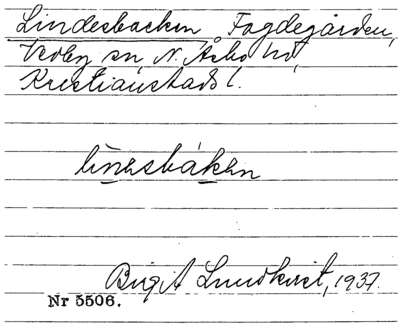 Lindesbacken, Fagdegården,
Vedby sn, N. Åsbo hd,
Kristianstads l.
linesbákan
Birgit Lundkvist, 1937.
Nr 5506.